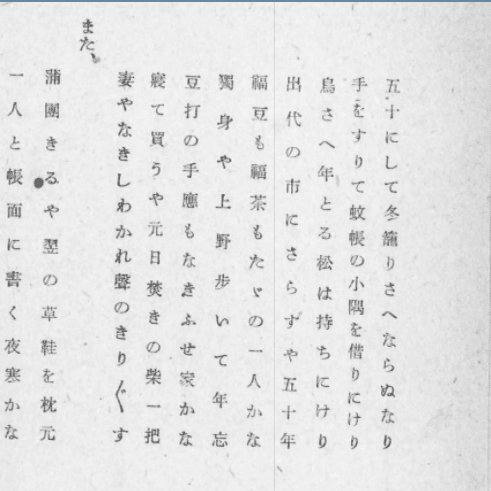 五十にして冬籠りさへならぬなり
手をすりて蚊帳の小隅を借りにけり
鳥さへ年とる松は持ちにけり
出代の市にさらずや五十年
福豆も福茶もたゞの一人かな
獨身や上野歩いて年忘
豆打の手應もなきふせ家かな
寢て買うや元日焚きの柴一把
妻やなきしわかれ聲のきり〴〵す
また、
蒲團きるや翌の草鞋を枕元
一人と帳面に書く夜寒かな